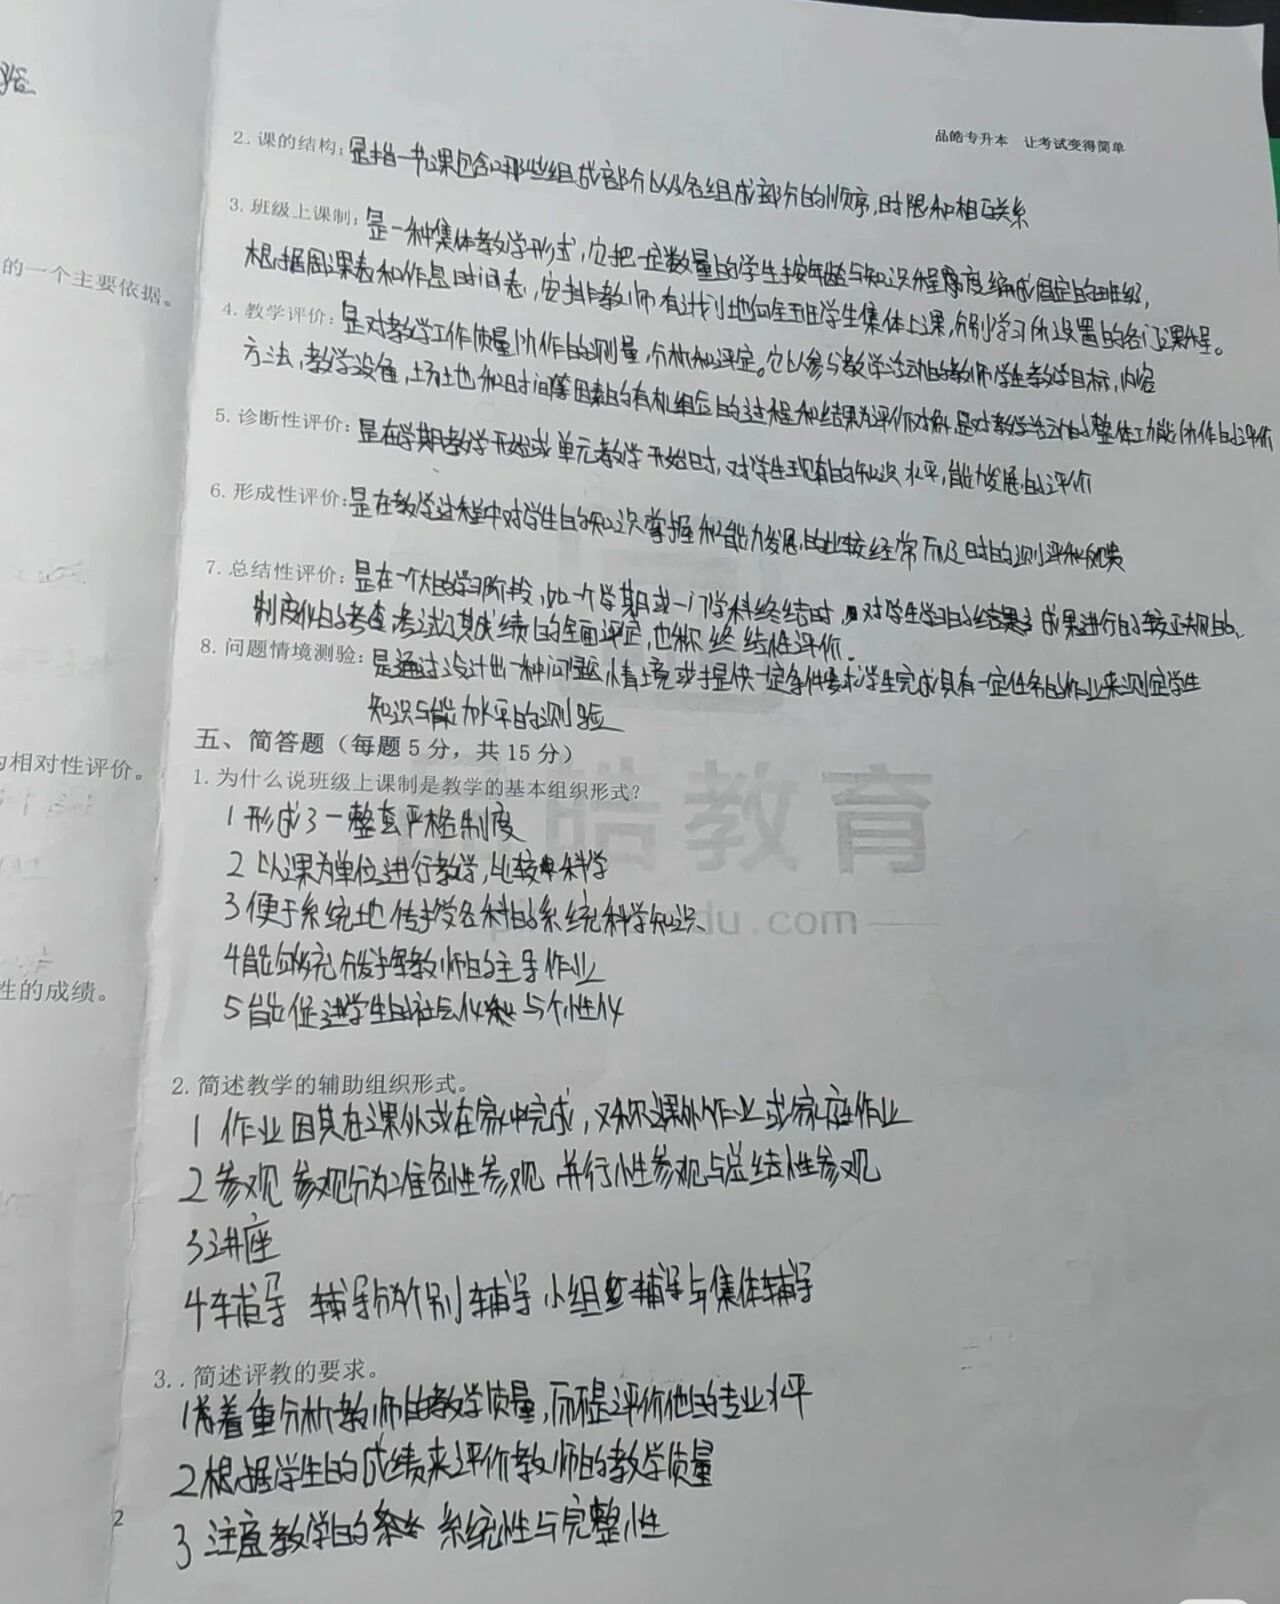 品皓专升本 让考试变得简单
2. 课的结构：是指一节课包含哪些组成部分以及各组成部分的顺序，时限和相互关系
3. 班级上课制：是一种集体教学形式，它把一定数量的学生按年龄与知识程度编成固定的班级，
根据周课表和作息时间表，安排教师有计划地向全班学生集体上课，分别学习所设置的各门课程。
的一个主要依据。
4. 教学评价：是对教学工作质量所作的测量，分析和评定。它以参与教学活动的教师学生教学目标，内容
方法，教学设备，场地和时间等因素的有机组合的过程和结果为评价对象，是对教学活动的整体功能所作的评价
5. 诊断性评价：是在学期教学开始或单元教学开始时，对学生现有的知识水平，能力发展的评价
6. 形成性评价：是在教学过程中对学生的知识掌握和能力发展的比较经常而及时的测评和反馈
7. 总结性评价：是在一个大的学习阶段，如一个学期或一门学科终结时，对学生学习的结果成果进行的较正规的、
制度化的考查，考试及其成绩的全面评定，也称终结性评价.
8. 问题情境测验：是通过设计出一种问题情境或提供一定条件要求学生完成具有一定任务的作业来测定学生
知识与能力水平的测验
五、简答题（每题 5 分，共 15 分）
相对性评价。
1. 为什么说班级上课制是教学的基本组织形式？
1 形成了一整套严格制度
皓教育
2 以课为单位进行教学，比较科学
3 便于系统地传授各科的系统科学知识
du.com
4 能够充分发挥教师的主导作业
性的成绩。
5 能促进学生的社会化与个性化
2. 简述教学的辅助组织形式。
1 作业 因其在课外或在家中完成，又称课外作业或家庭作业
2 参观 参观分为准备性参观 并行性参观与总结性参观
3 讲座
4 辅导 辅导分为个别辅导 小组辅导与集体辅导
3. . 简述评教的要求。
1 着重分析教师的教学质量，而不是评价他的专业水平
2 根据学生的成绩来评价教师的教学质量
3 注意教学的 系统性与完整性
2